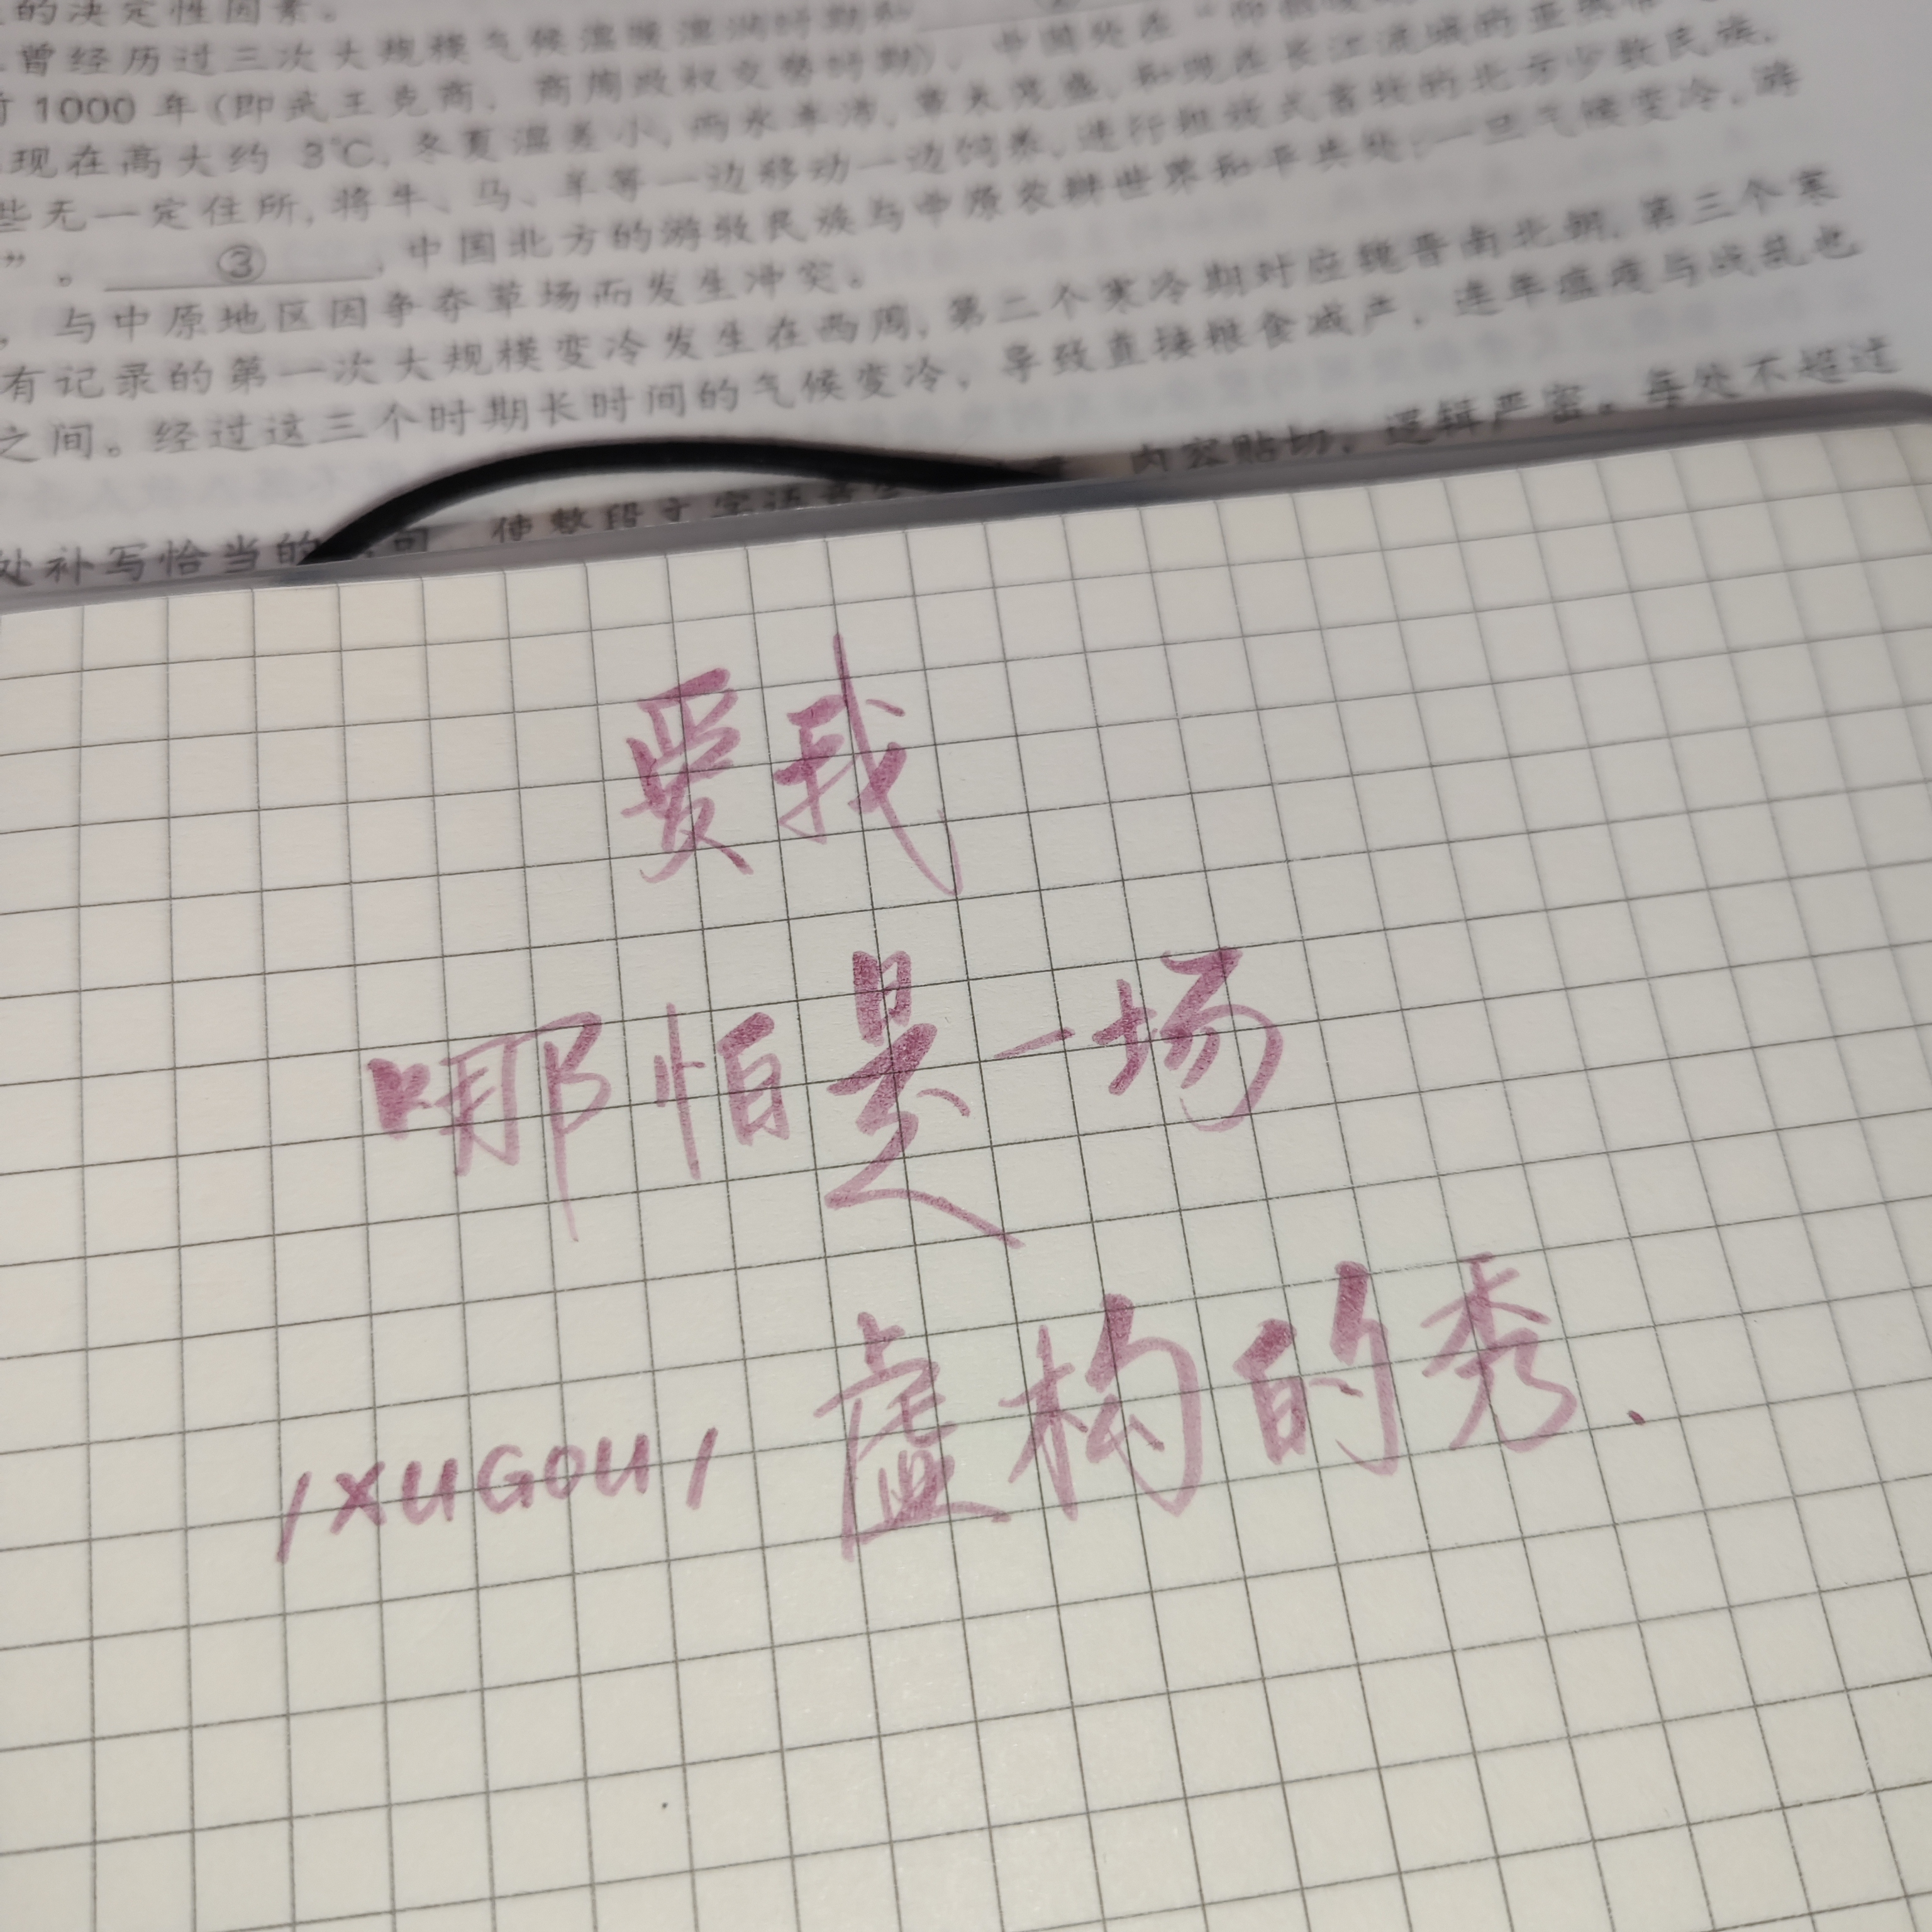 的决定性因素。
曾经历过三次大规模气候温暖湿润时期和
1000 年(即武王克商、商周政权交替时期),中国处在“
现在高大约 3℃,冬夏温差小,雨水丰沛,草木茂盛,和现在长江流域的亚热带
些无一定住所,将牛、马、羊等一边移动一边饲养,进行粗放式畜牧的北方少数民族,
”。③,中国北方的游牧民族与中原农耕世界和平共处;一旦气候变冷,游
,与中原地区因争夺草场而发生冲突。
有记录的第一次大规模变冷发生在西周,第二个寒冷期对应魏晋南北朝,第三个寒
之间。经过这三个时期长时间的气候变冷,导致直接粮食减产,连年瘟疫与战乱也
处补写恰当的语句,使整段文字语意 内容贴切,逻辑严密。每处不超过
爱我
哪怕是一场
/XUGOU/ 虚构的秀.